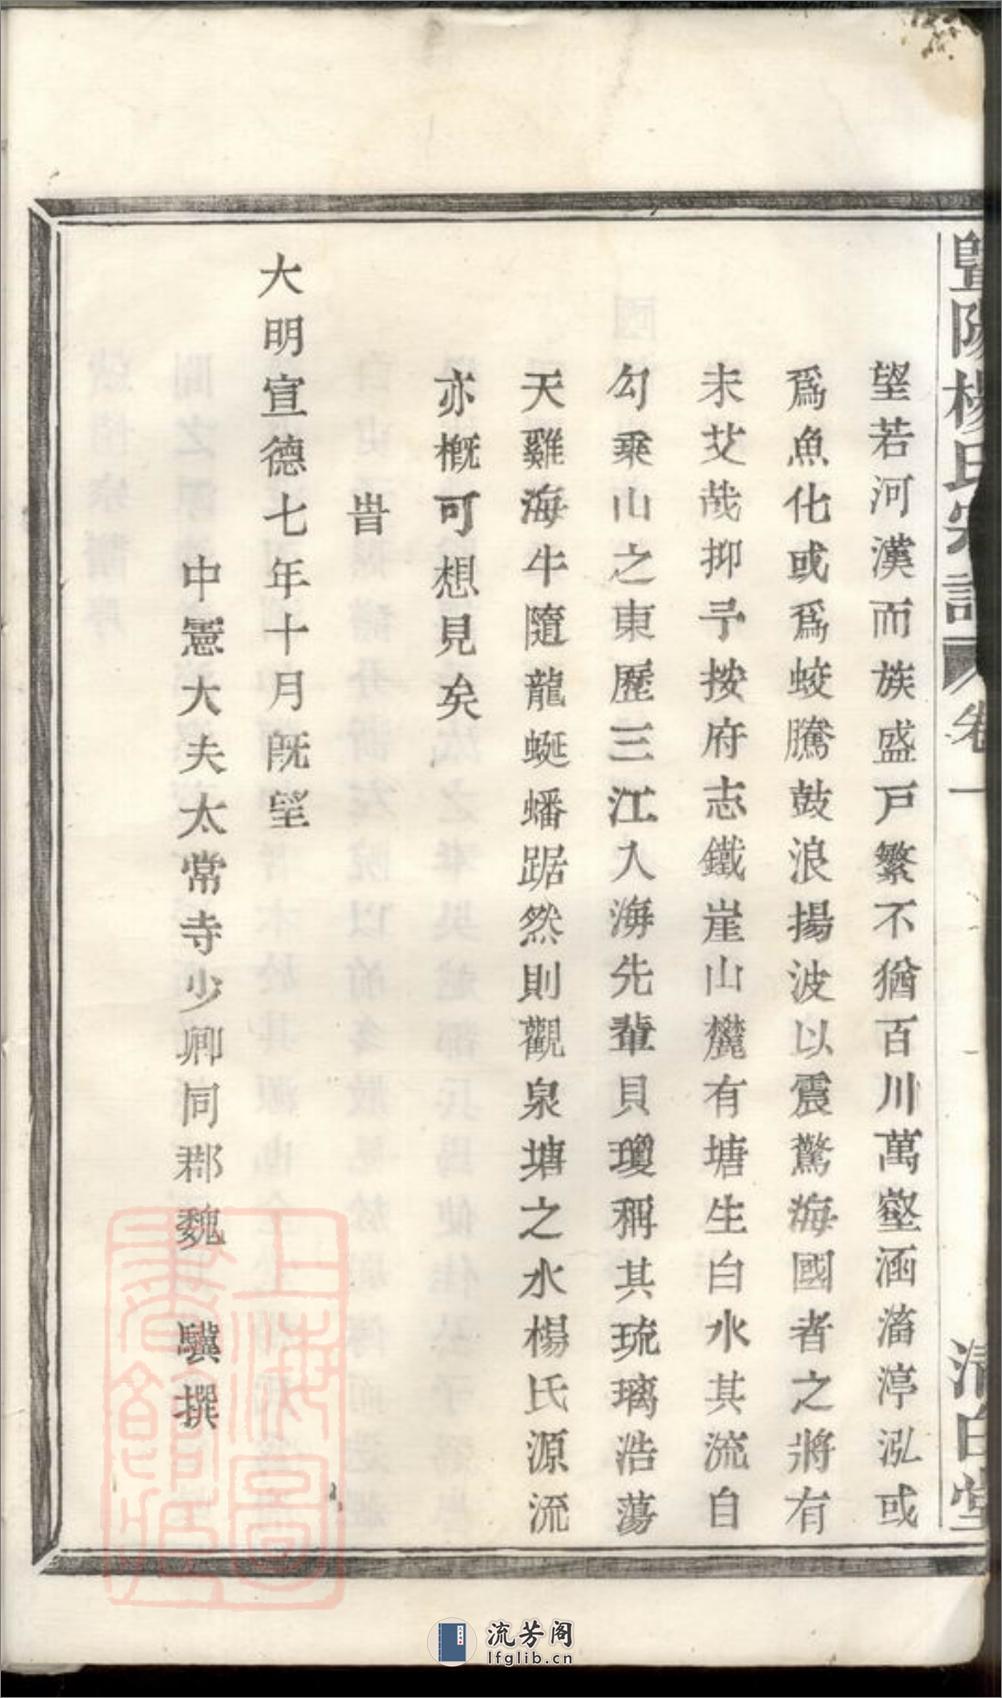 暨陽楊氏宗譜 卷一 清白堂
望若河漢而族盛戸繁不猶百川萬壑涵滀渟泓或
爲魚化或爲蛟騰鼓浪揚波以震驚海國者之將有
未艾㢤抑予按府志鐵崖山麓有塘生白水其流自
勾乗山之東歷三江入海先輩貝瓊稱其琉璃浩蕩
天雞海牛隨龍蜒蟠踞然則觀泉塘之水楊氏源流
亦概可想見矣
旹
大明宣德七年十月旣望
中憲大夫太常寺少卿同郡魏 驥撰
上海圖書館藏
流芳阁
lfglib.cn